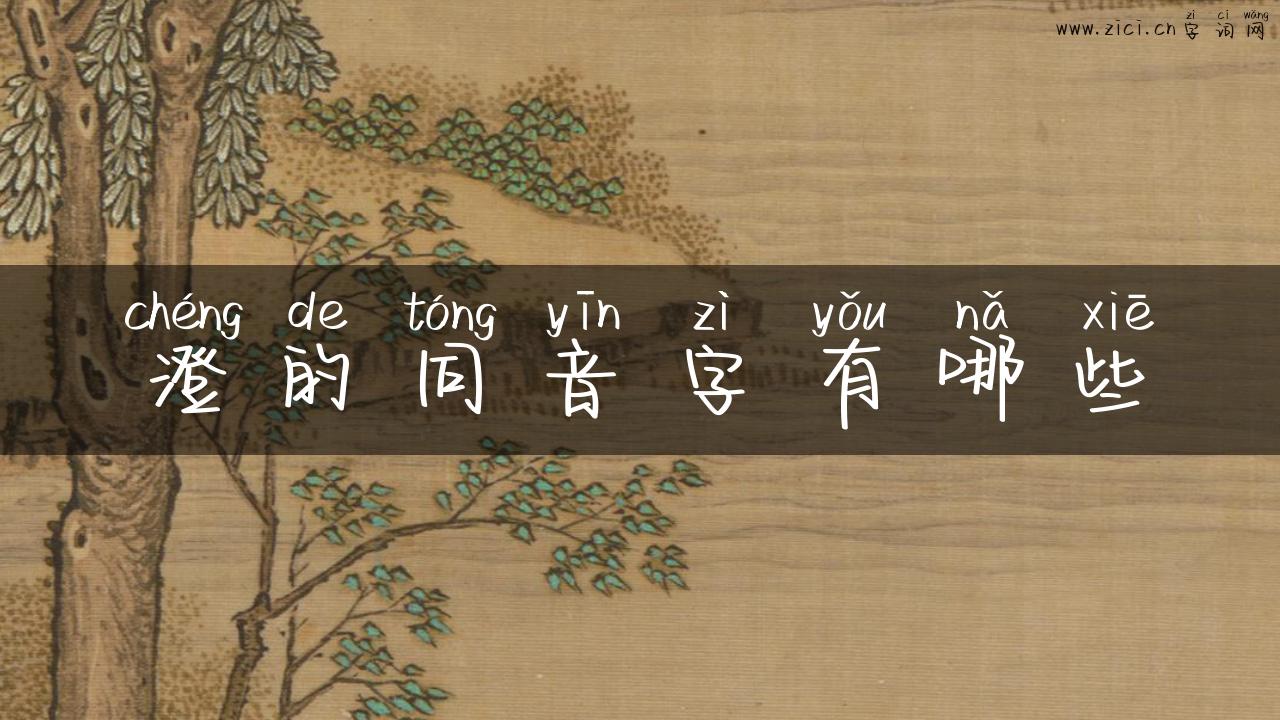 zì cí wǎng
www.zici.cn 字词网
chéng de tóng yīn zì yǒu nǎ xiē
澄的同音字有哪些